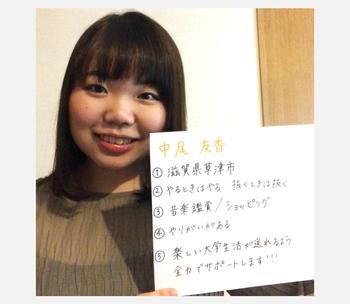 中尾 友香
① 滋賀県草津市
② やるときはやる 抜くときは抜く
③ 音楽鑑賞/ショッピング
④ やりがいがある
⑤ 楽しい大学生活が送れるよう
全力でサポートします!!!